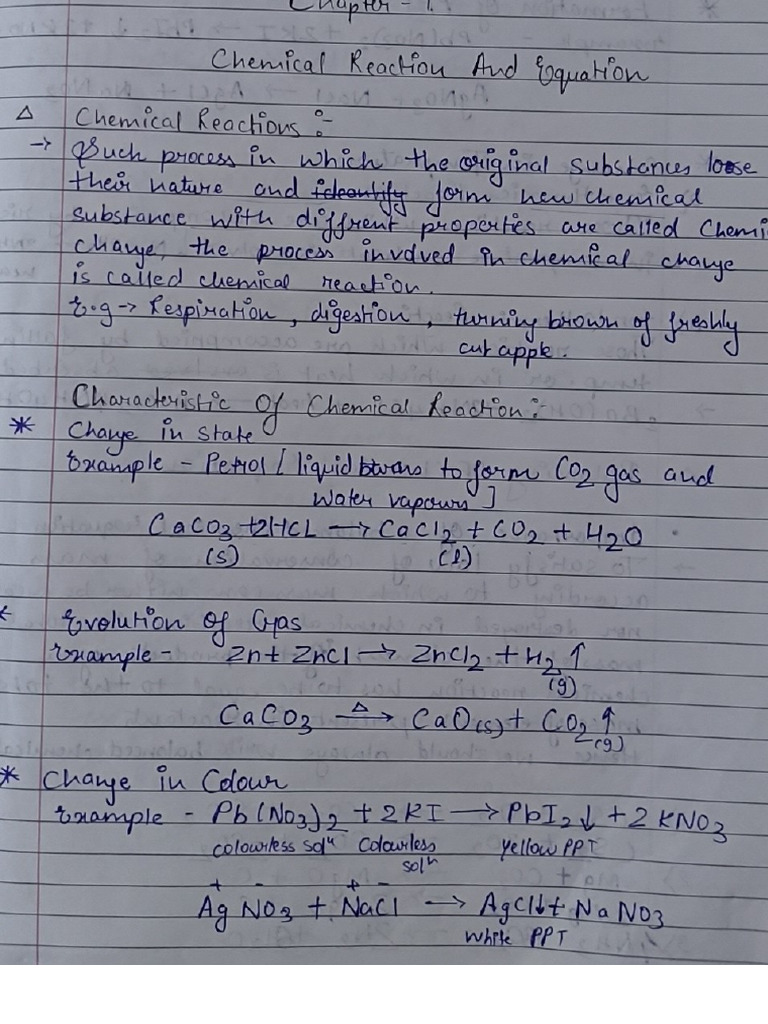 Chapter - 1.
Chemical Reaction And Equation
Δ Chemical Reactions :-
→ Such process in which the original substances loose
their nature and ideantify form new chemical
substance with diffrent properties are called Chemi
change, the process involved in chemical change
is called chemical reaction.
E.g → Respiration, digestion, turning brown of freshly
cut apple.
Characteristic Of Chemical Reaction :-
* Change in state
Example - Petrol [liquid burns to form CO2 gas and
Water vapours]
CaCO3 + 2HCL → CaCl2 + CO2 + H2O
(s) (l)
Evolution of Gas
Example - Zn + ZnCl → ZnCl2 + H2 ↑
(g)
CaCO3 Δ→ CaO(s) + CO2 ↑
(g)
* Change in Colour
Example - Pb(NO3)2 + 2KI → PbI2 ↓ + 2KNO3
colourless solⁿ Colourless solⁿ yellow PPT
+ - + -
AgNO3 + NaCl → AgCl↓ + NaNO3
white PPT